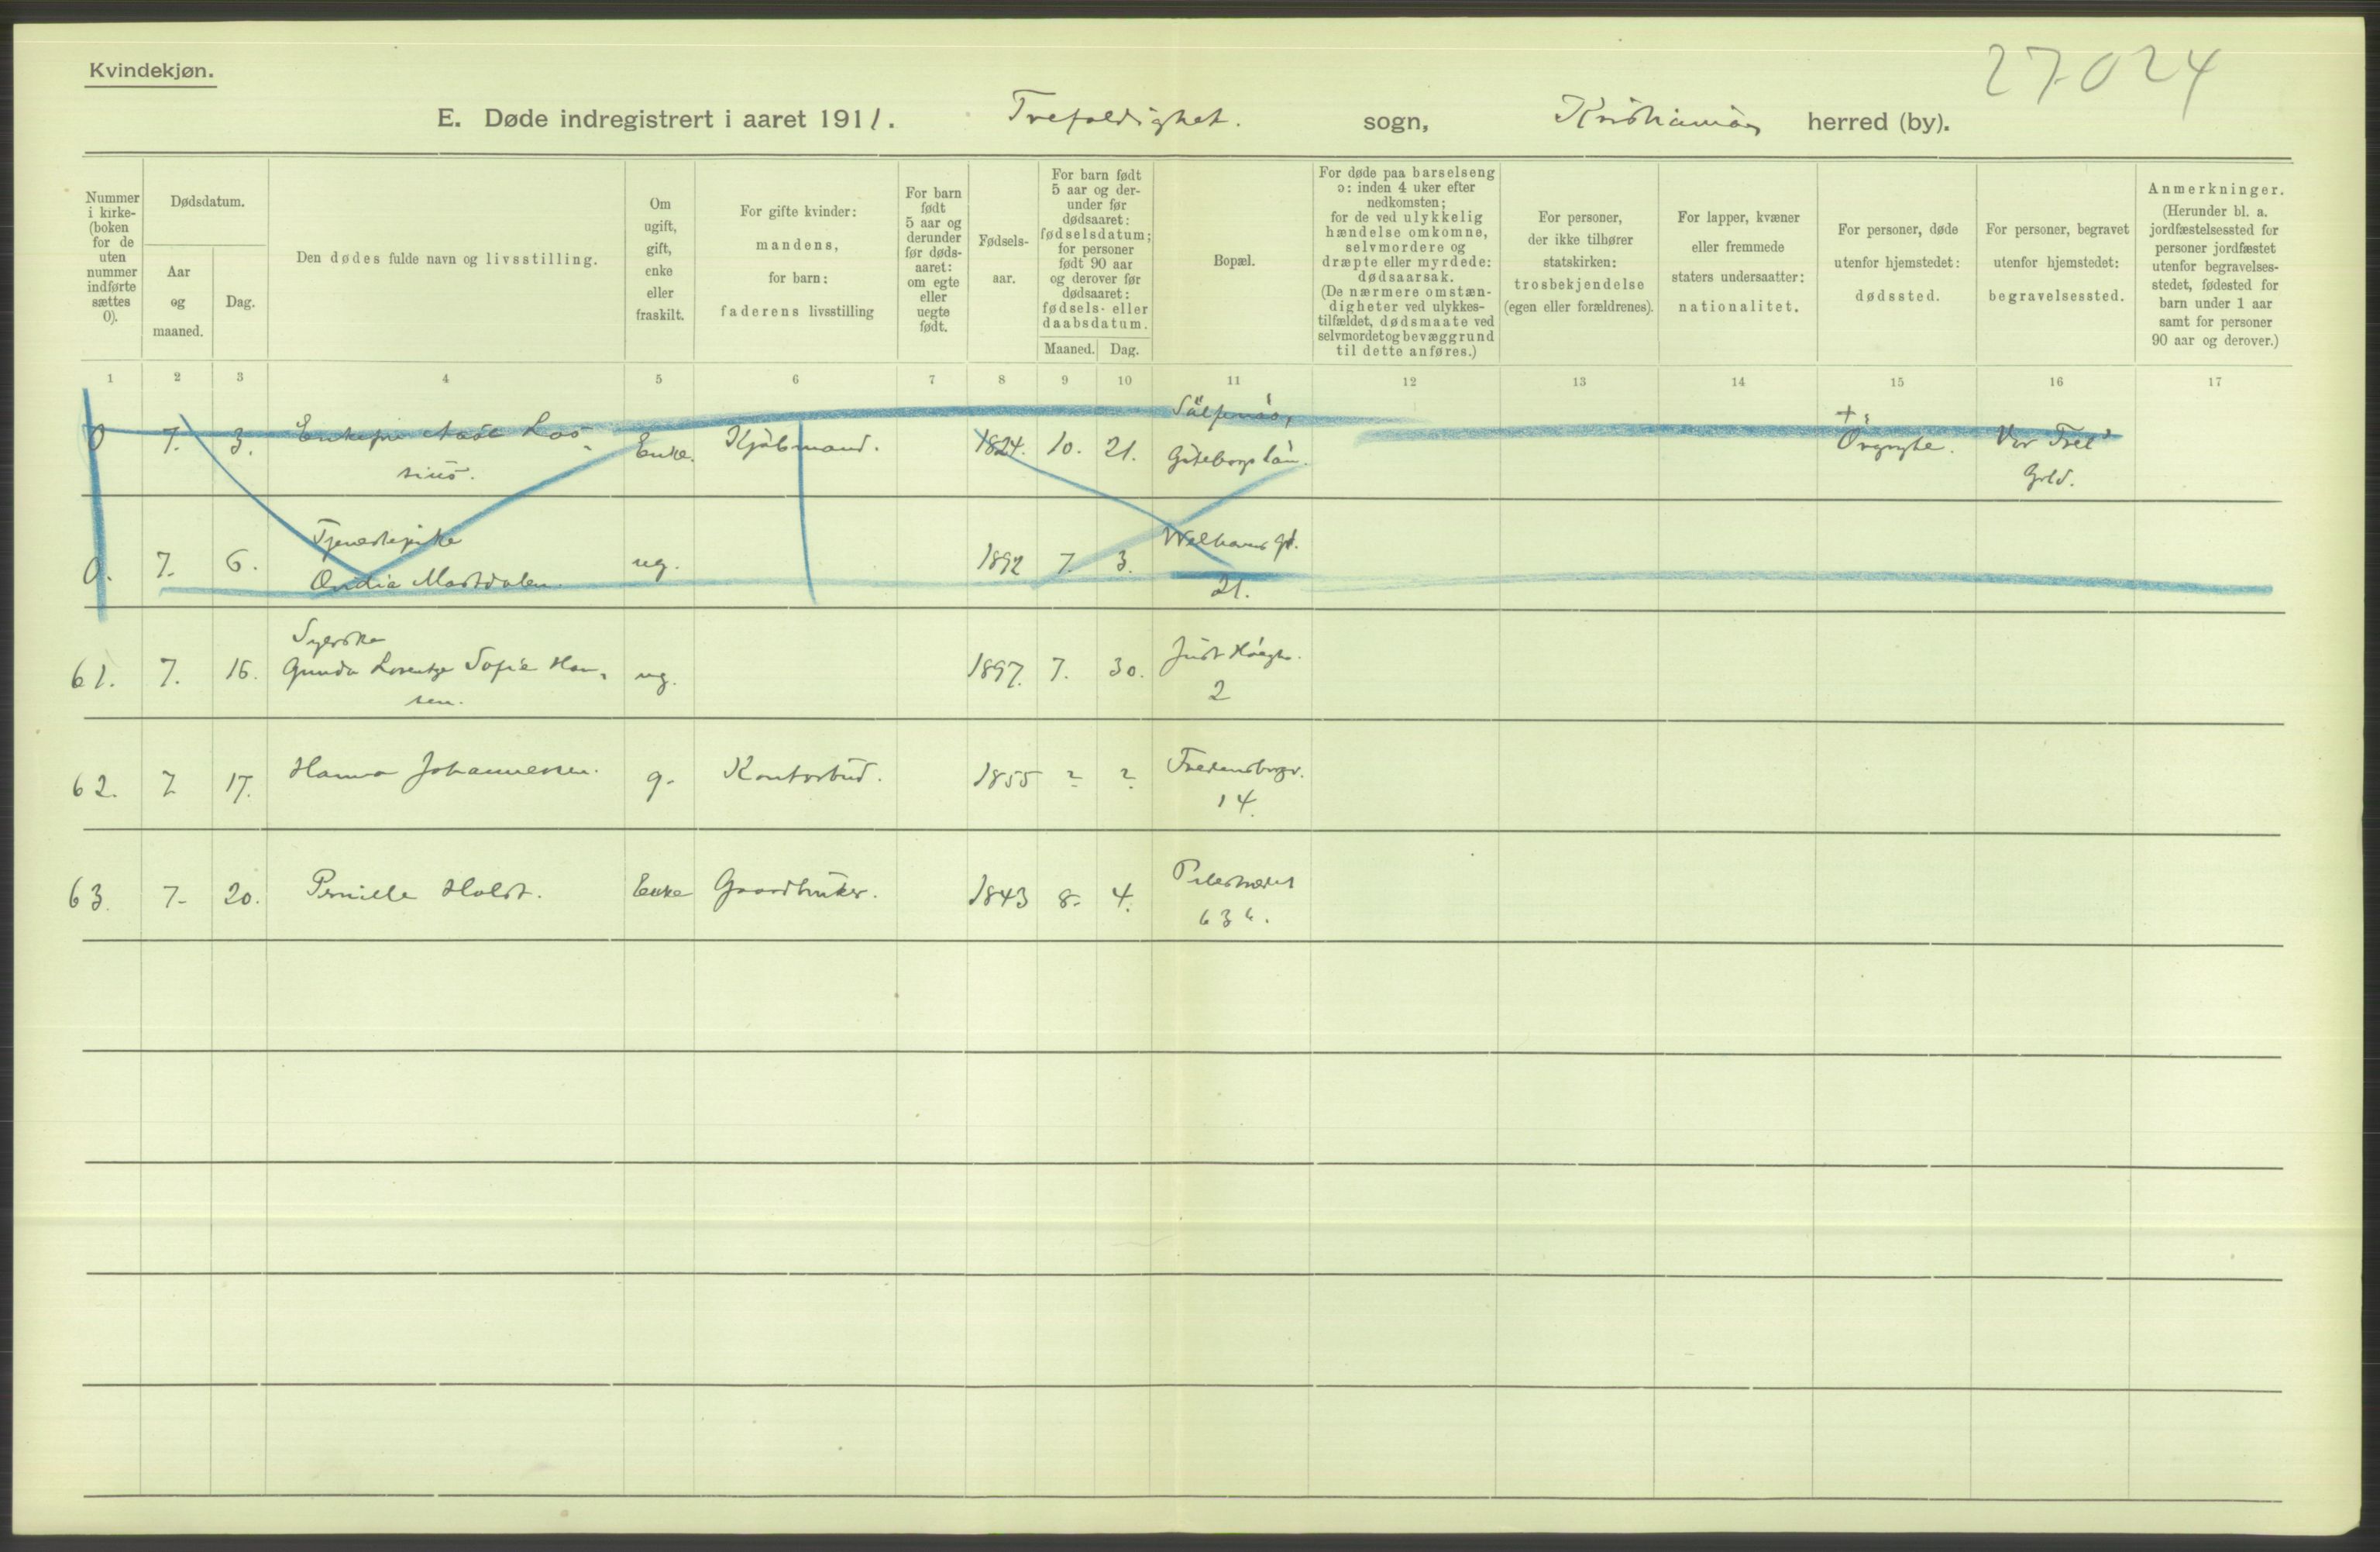 Kvindekjøn.
27024
E. Døde indregistrert i aaret 1911. Trefoldighet. sogn, Kristiania herred (by).
Nummer i kirke-(boken for de uten nummer indførte sættes 0).
Dødsdatum.
Aar og maaned.
Dag.
Den dødes fulde navn og livsstilling.
Om ugift, gift, enke eller fraskilt.
For gifte kvinder: mandens, for barn: faderens livsstilling
For barn født 5 aar og derunder før døds-aaret: om egte eller uegte født.
Fødsels-aar.
For barn født 5 aar og der-under før dødsaaret: fødselsdatum; for personer født 90 aar og derover før dødsaaret: fødsels- eller daabsdatum.
Maaned. Dag.
Bopæl.
For døde paa barselseng ɔ: inden 4 uker efter nedkomsten; for de ved ulykkelig hændelse omkomne, selvmordere og dræpte eller myrdede: dødsaarsak. (De nærmere omstæn-digheter ved ulykkes-tilfældet, dødsmaate ved selvmordet og bevæggrund til dette anføres.)
For personer, der ikke tilhører statskirken: trosbekjendelse (egen eller forældrenes).
For lapper, kvæner eller fremmede staters undersaatter: nationalitet.
For personer, døde utenfor hjemstedet: dødssted.
For personer, begravet utenfor hjemstedet: begravelsessted.
Anmerkninger. (Herunder bl. a. jordfæstelsessted for personer jordfæstet utenfor begravelses-stedet, fødested for barn under 1 aar samt for personer 90 aar og derover.)
1 2 3 4 5 6 7 8 9 10 11 12 13 14 15 16 17
0 7. 3. Enkefru Enke. Kjøbmand. 1824. 10. 21. Göteborgs län. + Örgryte. Vor Frel's
Grld.
0. 7. 6. Tjenestepike
ug. 1892 7. 3. Welhavens gt.
21.
Syerske
61. 7. 16. Gunda Lorentze Sofie Han-
sen. ug. 1897. 7. 30. Just Høeghs.
2
62. 7 17. Hanna Johannesen. g. Kontorbud. 1855 ? ? Fredensborgv.
14.
63. 7. 20. Pernille Holst. Enke Gaardbruker. 1843 8. 4. Pilestrædet
63